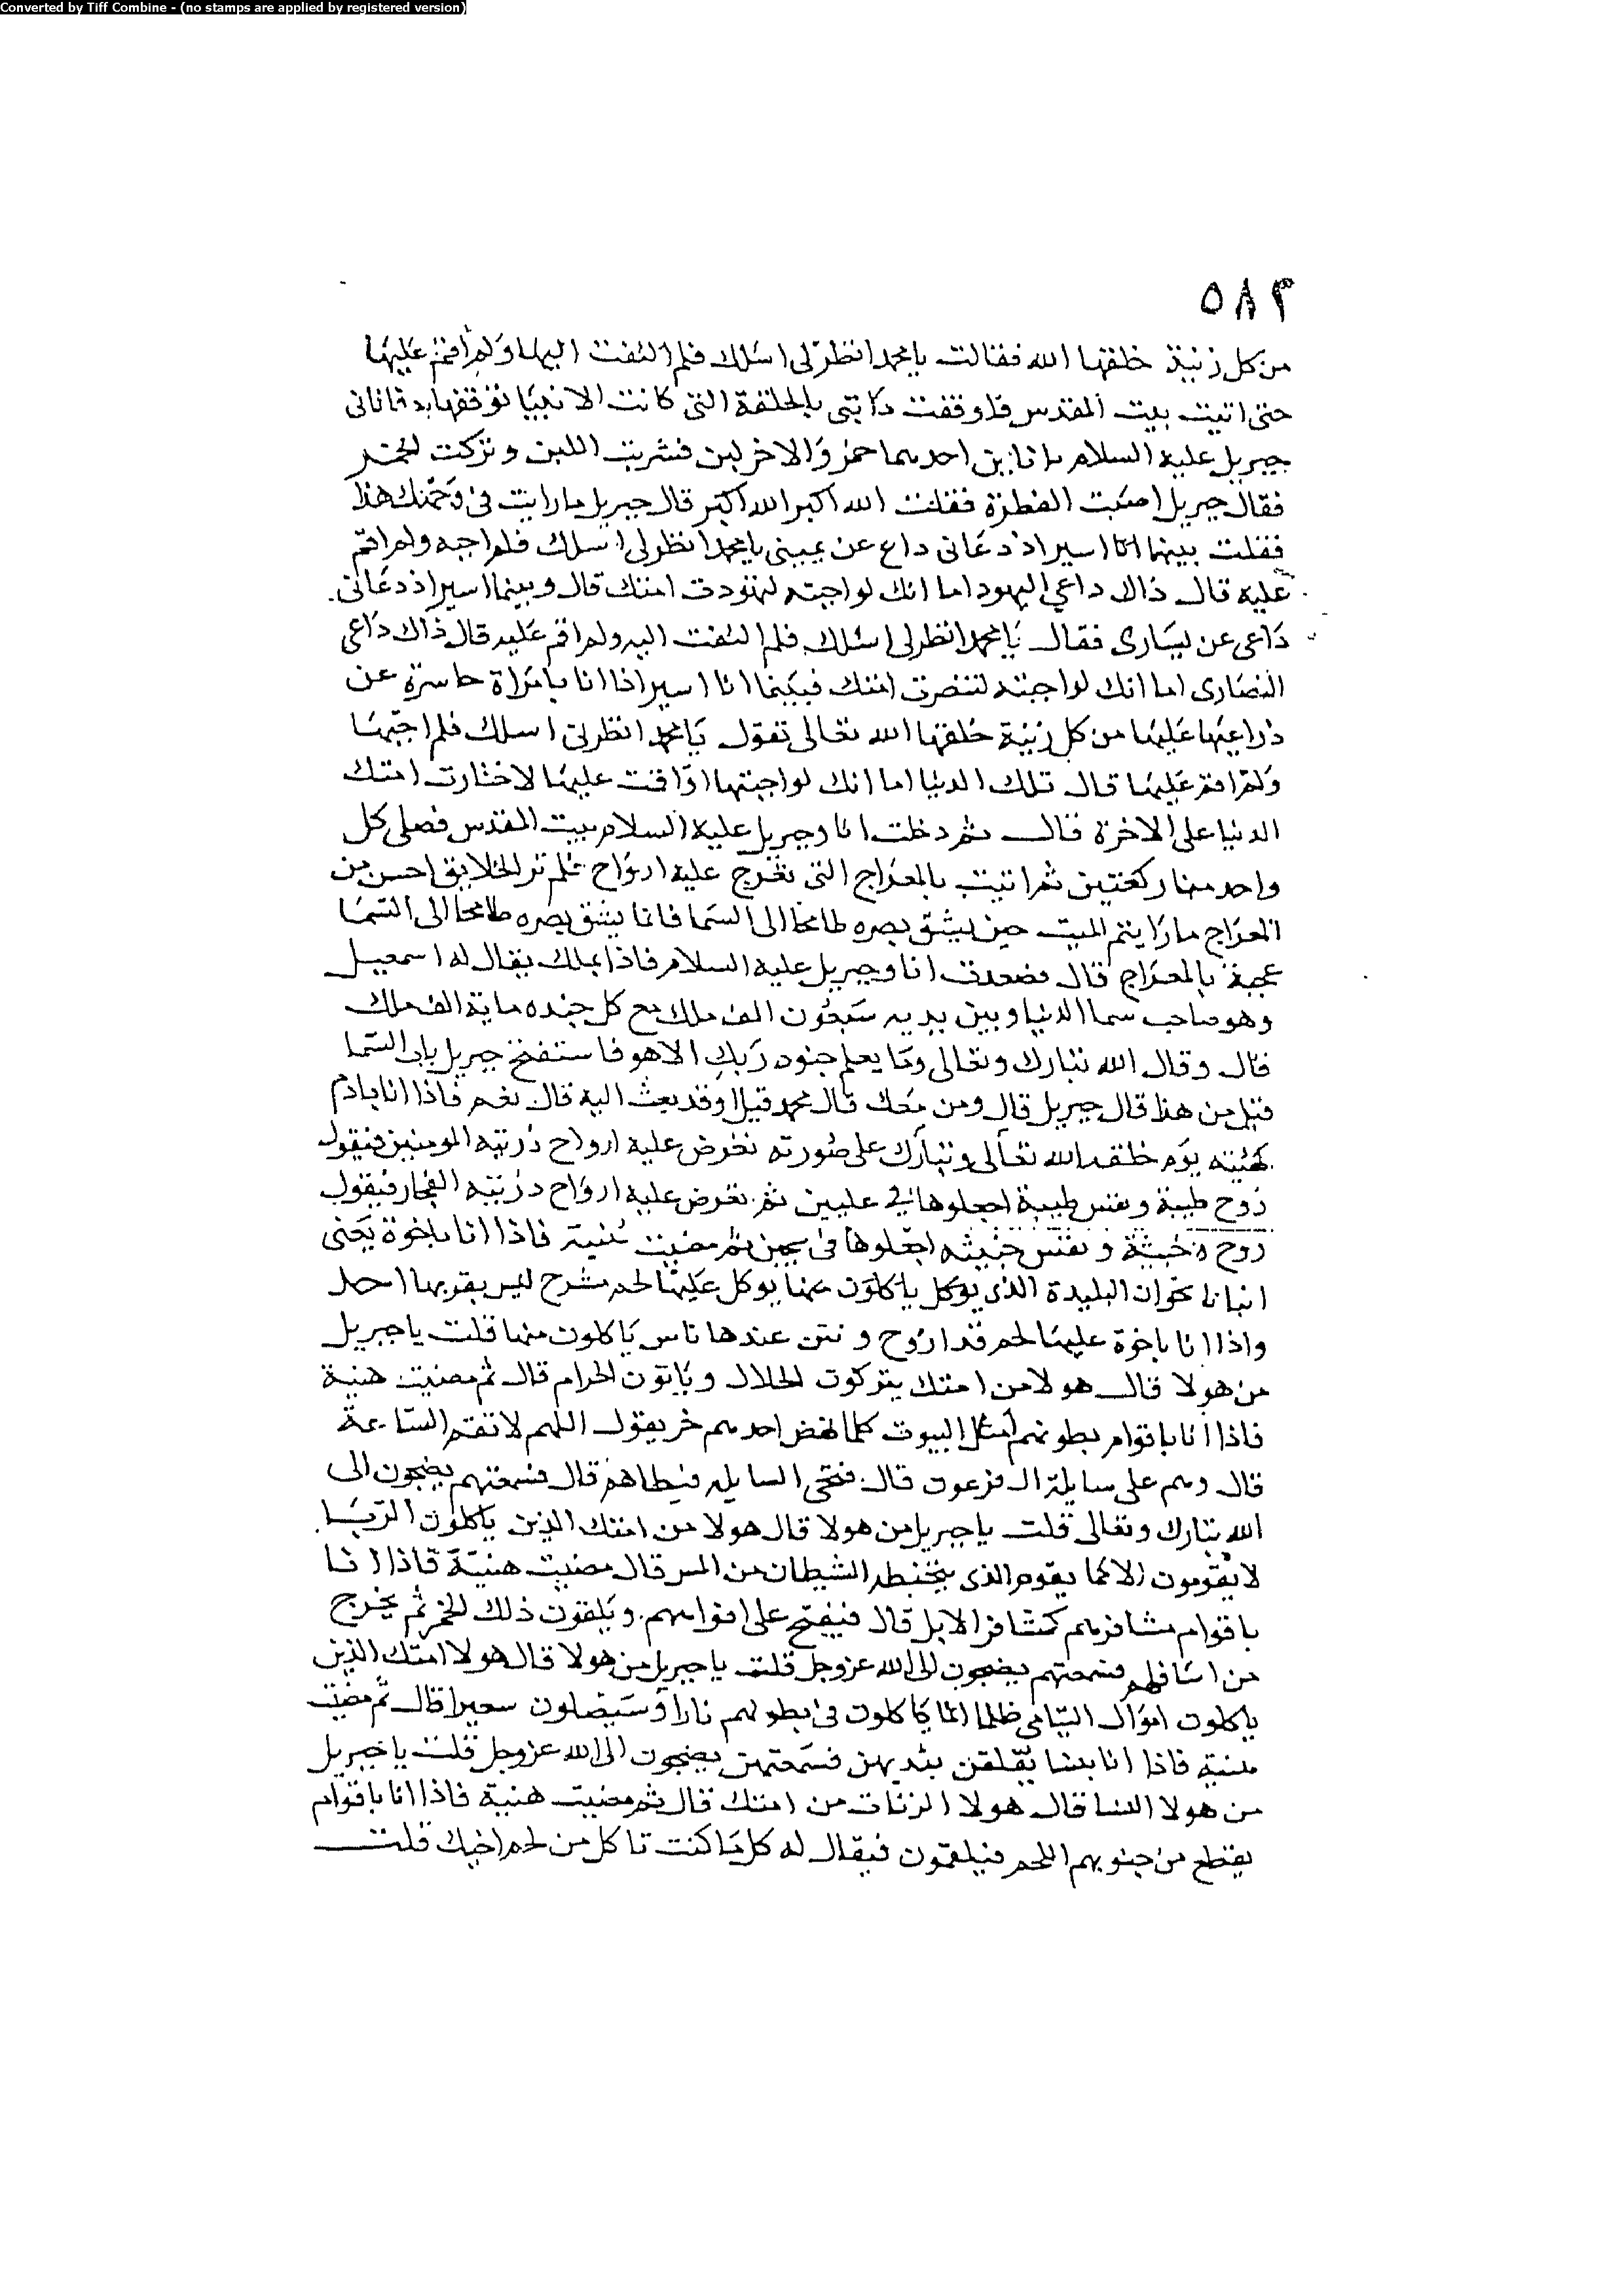 Converted by Tiff Combine - (no stamps are applied by registered version)
٥٨٣
من كل زينة خلقها الله فقالت يا محمد انظرني اسلك فلم التفت اليها ولم أقم عليها
حتى اتيت بيت المقدس فاوقفت دابتي بالحلقة التي كانت الانبيا توقفها به فاتاني
جبريل عليه السلام بانابين احدهما خمر والاخر لبن فشربت اللبن وتركت الخمر
فقال جبريل اصبت الفطرة فقلت الله اكبر الله اكبر قال جبريل ما رايت في وجهك هذا
فقلت بينما انا اسير اذ دعاني داع عن يميني يا محمد انظرني اسلك فلم اجبه ولم اقم
عليه قال ذاك داعي اليهود اما انك لو اجبته لتهودت امتك قال وبينما اسير اذ دعاني
داعى عن يسارى فقال يا محمد انظرني اسلك فلم التفت اليه ولم اقم عليه قال ذاك داعى
النصارى اما انك لو اجبته لتنصرت امتك فبينما انا اسير اذا انا بامراة حاسرة عن
ذراعيها عليها من كل زينة خلقها الله تعالى تقول يا محمد انظرني اسلك فلم اجبها
ولم اقم عليها قال تلك الدنيا اما انك لو اجبتها او اقمت عليها لاختارت امتك
الدنيا على الاخرة قال ثم دخلت انا وجبريل عليه السلام بيت المقدس فصلى كل
واحد منا ركعتين ثم اتيت بالمعراج التي تعرج عليه ارواح فلم تر الخلايق احسن من
المعراج ما رايتم الميت حين يشق بصره طامحا الى السما فانما يشق بصره طامحا الى السما
عجبة بالمعراج قال فصعدت انا وجبريل عليه السلام فاذا بملك يقال له اسمعيل
وهو صاحب سما الدنيا وبين يديه سبعون الف ملك مع كل جنده ماية الف ملك
قال وقال الله تبارك وتعالى وما يعلم جنود ربك الا هو فاستفتح جبريل باب السما
قيل من هذا قال جبريل قال ومن معك قال محمد قيل اوقد بعث اليه قال نعم فاذا انا بادم
كهيئته يوم خلقه الله تعالى وتبارك على صورته تعرض عليه ارواح ذريته المومنين فيقول
روح طيبة ونفس طيبة اجعلوها في عليين ثم تعرض عليه ارواح ذريته الفجار فيقول
روح خبيثة ونفس خبيثه اجعلوها في سجين ثم مضيت هنية فاذا انا باخوة يعنى
خوان البليدة الذى يوكل ياكلون عليها لحم مشرح ليس يقربها احد
واذا انا باخوة عليها لحم قد اروح ونتن عندها ناس ياكلون منها قلت يا جبريل
من هولا قال هولا من امتك يتركون الحلال وياتون الحرام قال ثم مضيت هنية
فاذا انا باقوام بطونهم امثال البيوت كلما نهض احدهم خر يقول اللهم لا تقم الساعة
قال وهم على سابلة ال فرعون قال فتجى السابله فيطاهم قال فسمعتهم يضجون الى
الله تبارك وتعالى قلت يا جبريل من هولا قال هولا من امتك الذين ياكلون الربا
لا يقومون الا كما يقوم الذى يتخبطه الشيطان من المس قال مضيت هنية فاذا انا
باقوام مشافرهم كمشافر الابل قال فيفتح على افواههم ويلقون ذلك الجمر ثم يخرج
من اسافلهم فسمعتهم يضجون الى الله عز وجل قلت يا جبريل من هولا قال هولا امتك الذين
ياكلون اموال اليتامى ظلما انما ياكلون في بطونهم نارا وسيصلون سعيرا قال ثم مضيت
هنية فاذا انا بنسا يعلقن بثديهن فسمعتهن يضجون الى الله عز وجل قلت يا جبريل
من هولا النسا قال هولا الزناة من امتك قال ثم مضيت هنية فاذا انا باقوام
يقطع من جنوبهم اللحم فيلقمون فيقال له كل ما كنت تاكل من لحم اخيك قلت